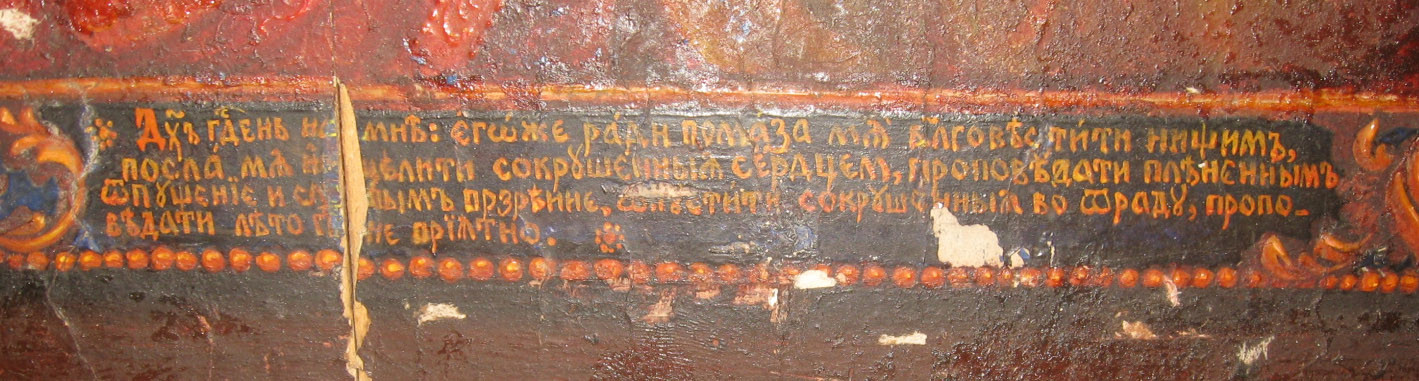 Дх҃ъ гⷭ҇день на мнѣ: є҆гѡ́же ра́ди пома́за мѧ̀ бл҃говѣсти́ти нищимъ,
посла́ мѧ и҆сцѣлити сокрꙋшенныѧ сердцемъ, проповѣдати плѣненнымъ
ѿпꙋщенїе и слѣпымъ прозрѣнїе, ѿпꙋсти́ти сокрꙋшенныѧ во ѿраду, пропо-
вѣдати лѣто гдⷭ҇не прїѧ́тно.